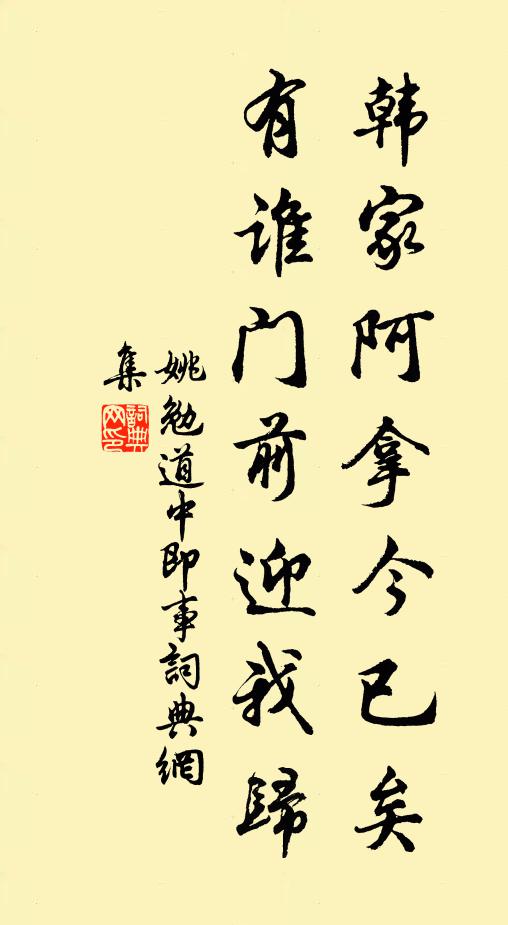 韩家阿拿今已矣
有谁门前迎我歸
姚勉道中即事詞典網
集
詞典
网印